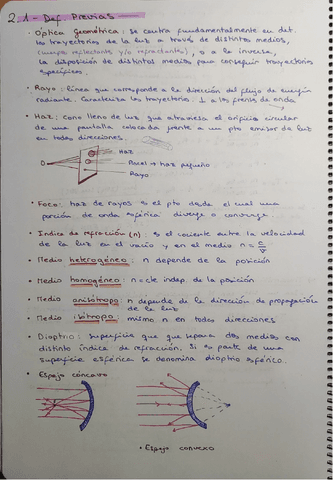 2.1 - Def. Previas
• Óptica geométrica: se centra fundamentalmente en det.
las trayectorias de la luz a través de distintos medios,
(cuerpo reflectante y/o refractantes), o a la inversa,
la disposición de distintos medios para conseguir trayectorias
específicas.
• Rayo: línea que corresponde a la dirección del flujo de energía
radiante. Caracteriza las trayectorias. ⊥ a los frentes de onda
• Haz: cono lleno de luz que atraviesa el orificio circular
de una pantalla colocada frente a un pto emisor de luz
en todas direcciones.
Haz
Pincel → haz pequeño
Rayo
• Foco: haz de rayos es el pto desde el cual una
porción de onda esférica diverge o converge.
• Índice de refracción (n): es el cociente entre la velocidad
de la luz en el vacío y en el medio n = c/v
• Medio heterogéneo: n depende de la posición
• Medio homogéneo: n = cte indep. de la posición
• Medio anisótropo: n depende de la dirección de propagación
de la luz
• Medio isótropo: mismo n en todas direcciones
• Dioptrio: superficie que separa dos medios con
distinto índice de refracción. Si es parte de una
superficie esférica se denomina dioptrio esférico.
• Espejo cóncavo
• Espejo convexo